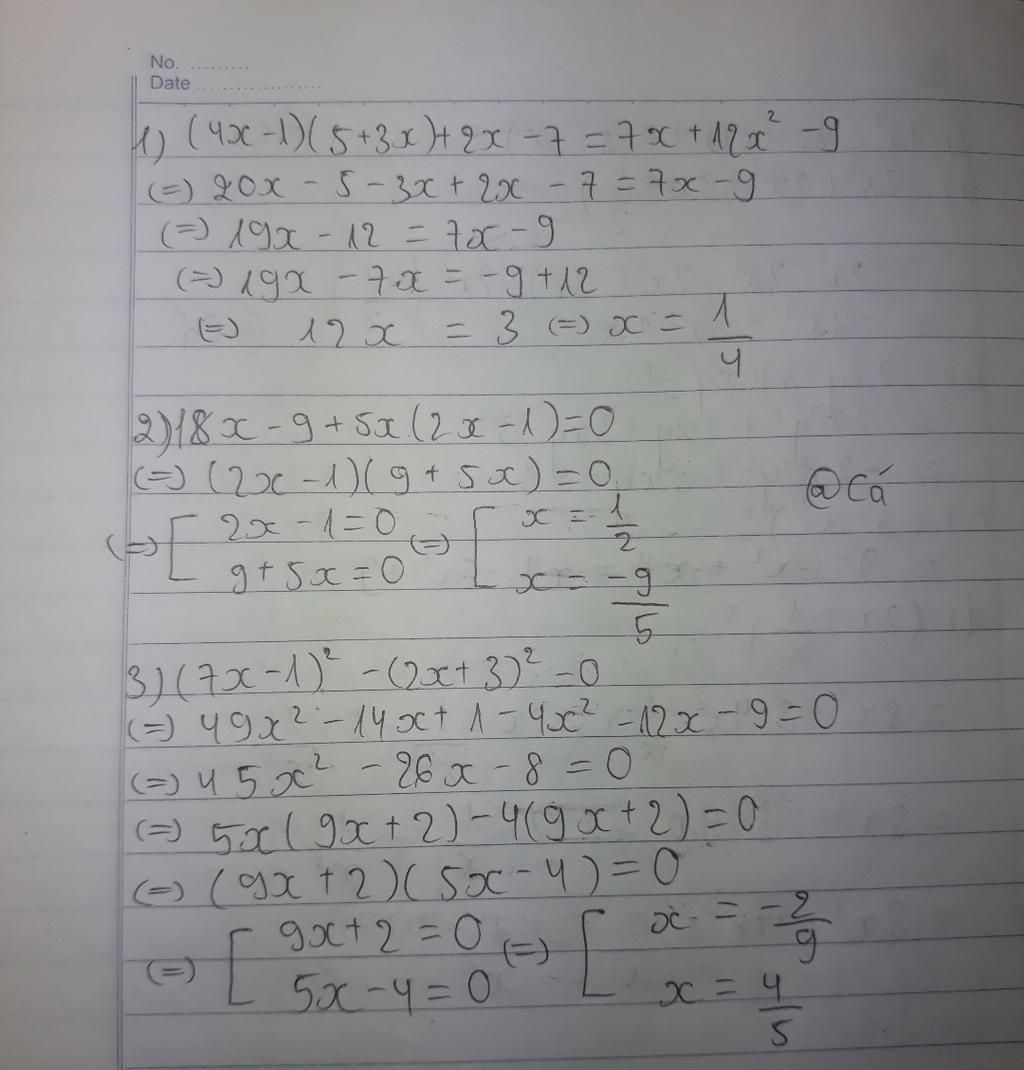 No. .........
Date ...................
1) (4x-1)(5+3x)+2x-7=7x+12x²-9
(=) 20x-5-3x+2x-7=7x-9
(=) 19x-12=7x-9
(=) 19x-7x=-9+12
(=) 12x=3 (=) x=1/4
2) 18x-9+5x(2x-1)=0
(=) (2x-1)(9+5x)=0
@cá
(=) [ 2x-1=0 (=) [ x=1/2
9+5x=0 x=-9/5
3) (7x-1)²-(2x+3)²-0
(=) 49x²-14x+1-4x²-12x-9=0
(=) 45x²-26x-8=0
(=) 5x(9x+2)-4(9x+2)=0
(=) (9x+2)(5x-4)=0
(=) [ 9x+2=0 (=) [ x=-2/9
5x-4=0 x=4/5